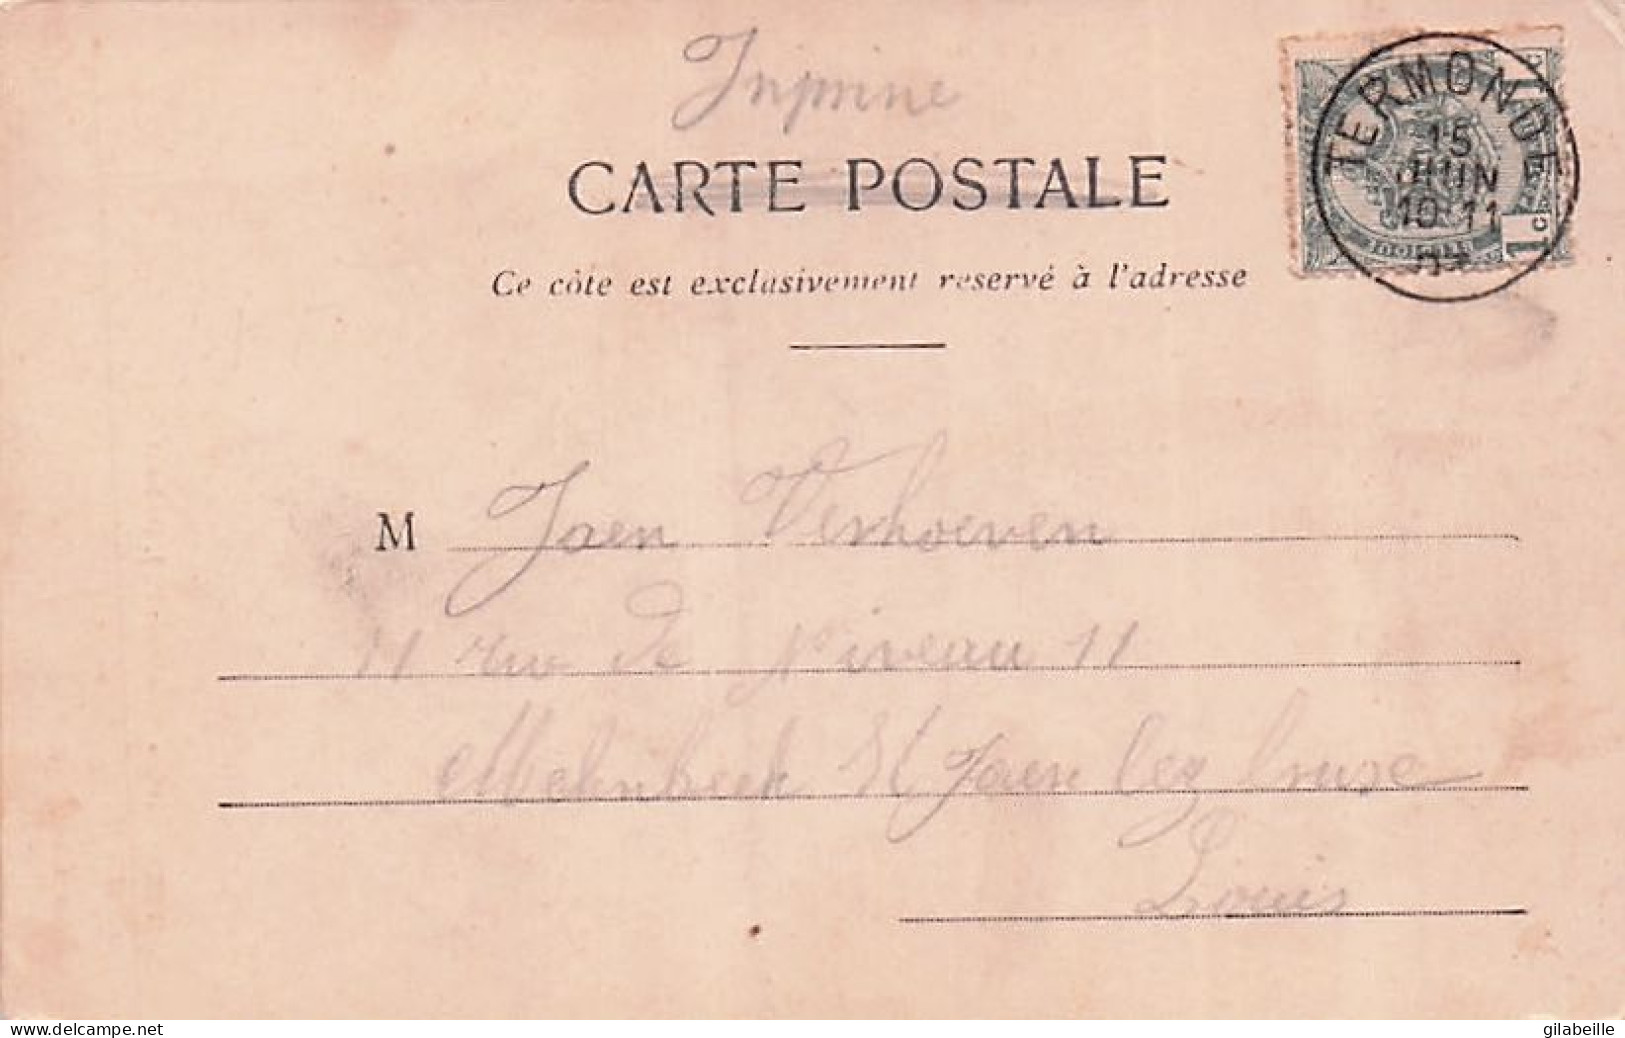 Inprime
CARTE POSTALE
Ce côte est exclusivement reservé à l'adresse
TERMONDE
15
JUIN
10-11
1 C
M Jaen Verhoeven
11 rue de Niveau 11
St Jaen
Louis
www.delcampe.net
gilabeille